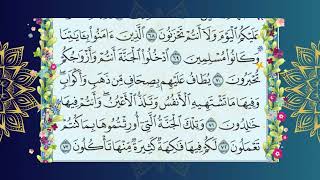 عَلَيْكُمُ ٱلْيَوْمَ وَلَآ أَنتُمْ تَحْزَنُونَ ٦٨ ٱلَّذِينَ ءَامَنُوا۟ بِـَٔايَٰتِنَا
وَكَانُوا۟ مُسْلِمِينَ ٦٩ ٱدْخُلُوا۟ ٱلْجَنَّةَ أَنتُمْ وَأَزْوَٰجُكُمْ
تُحْبَرُونَ ٧٠ يُطَافُ عَلَيْهِم بِصِحَافٍ مِّن ذَهَبٍ وَأَكْوَابٍ
وَفِيهَا مَا تَشْتَهِيهِ ٱلْأَنفُسُ وَتَلَذُّ ٱلْأَعْيُنُ وَأَنتُمْ فِيهَا
خَٰلِدُونَ ٧١ وَتِلْكَ ٱلْجَنَّةُ ٱلَّتِىٓ أُورِثْتُمُوهَا بِمَا كُنتُمْ
تَعْمَلُونَ ٧٢ لَكُمْ فِيهَا فَٰكِهَةٌ كَثِيرَةٌ مِّنْهَا تَأْكُلُونَ ٧٣